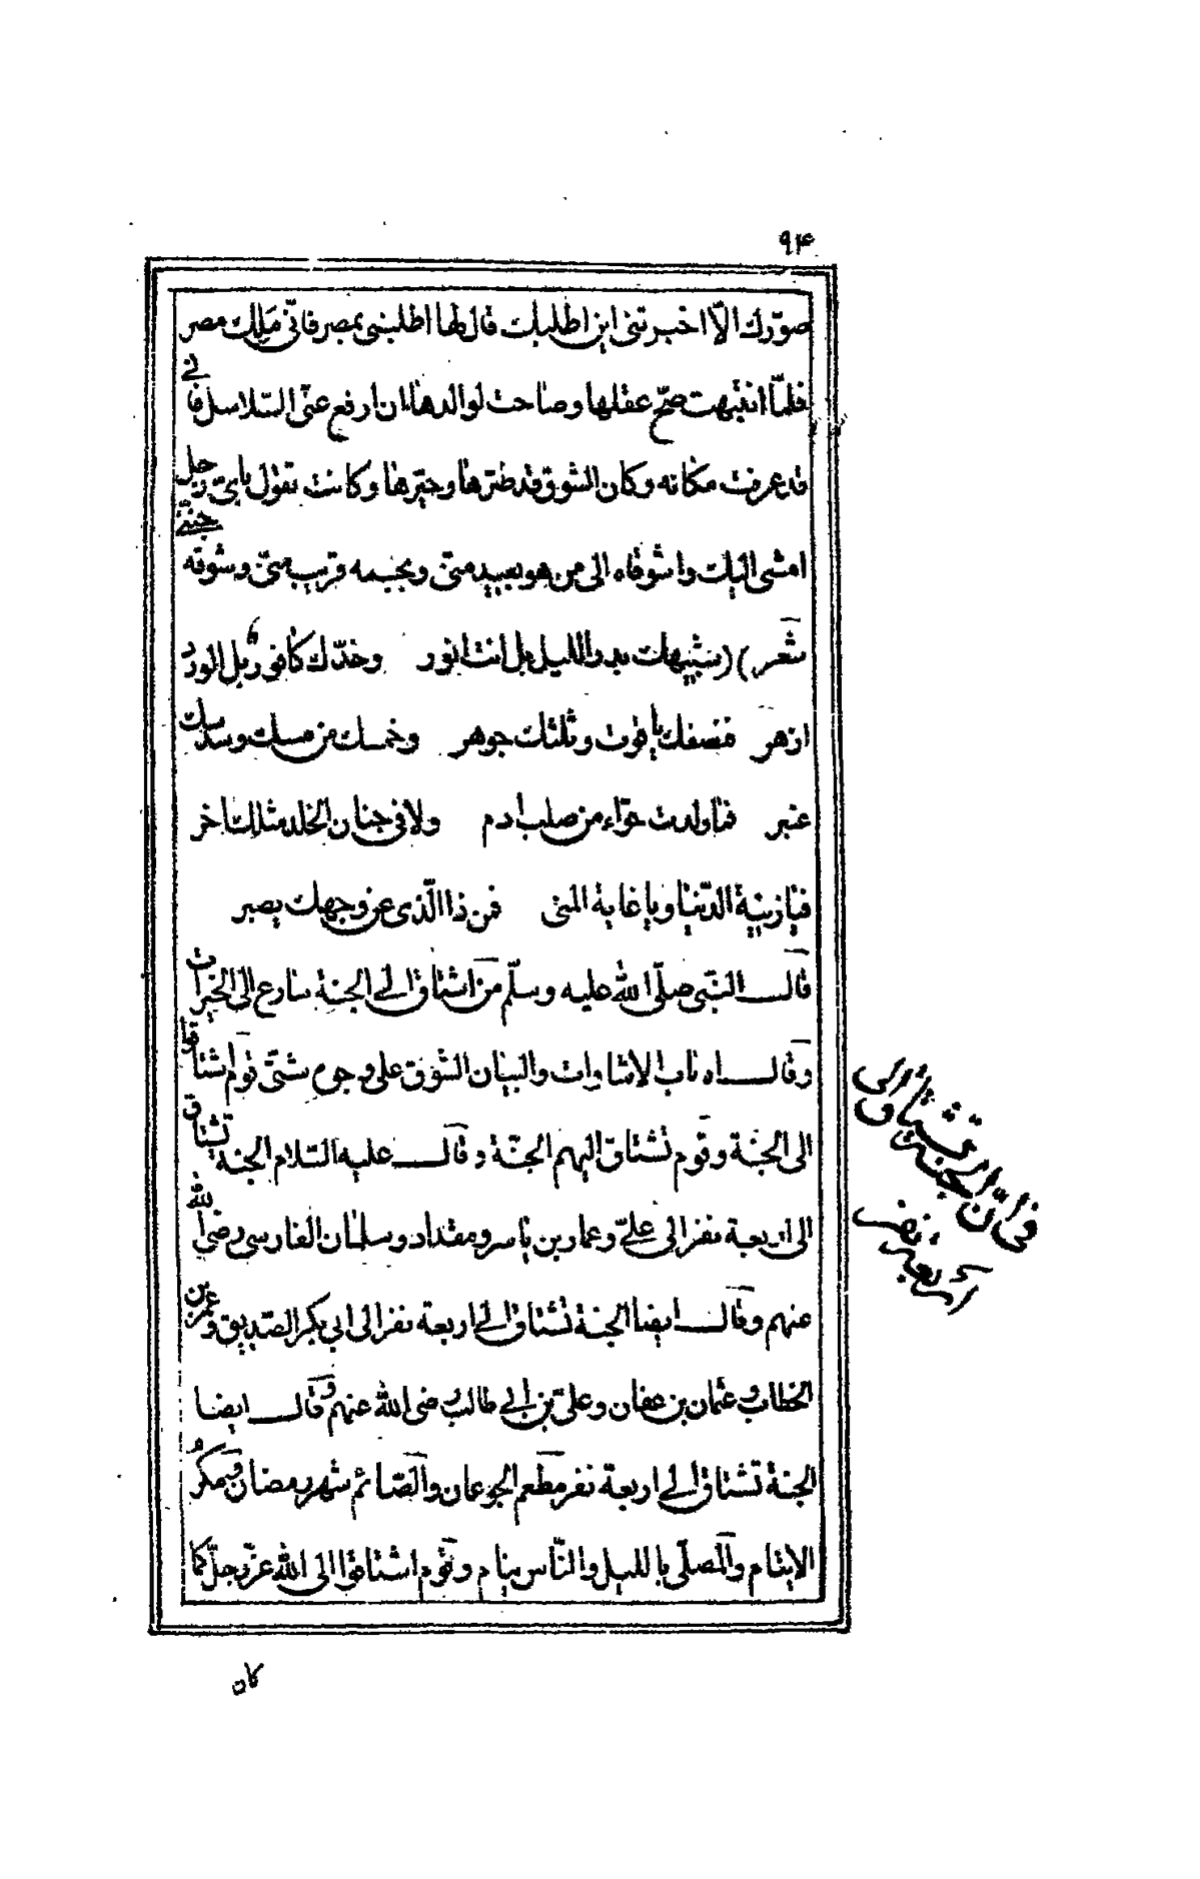 ٩٤
صوّرك الّا اخبرتنى اين اطلبك قال لها اطلبنى بمصر فانّى مَلِك مصر
فلمّا انتبهت صحّ عقلها وصاحت لوالدها ان ارفع عنّى السّلاسل فانى
قد عرفت مكانه وكان الشوق قد طيّرها وحيّرها وكانت تقول باىّ رجل
امشى اليك واشوقاه الى من هو بعيد منّى وبجسمه قريب منّى وشوقه جننى
شعر) (شبيهك بدر الليل بل انت انور وخدّك كافور بل الورد
ازهر فنصفك ياقوت وثلثك جوهر وخمسك من مسك وسدسك
عنبر فما ولدت حوّاء من صلب ادم ولا فى جنان الخلد مثلك اخر
فيا زينة الدّنيا ويا غاية المنى فمن ذا الّذى عن وجهك يصبر
قال النبّى صلّى الله عليه وسلّم من اشتاق الى الجنة سارع الى الخيرات
وقال ارباب الاشاوات والبيان الشوق على وجوه شتّى قوام شتاقوا
الى الجنّة وقوم تشتاق اليهم الجنّة وقال عليه السّلام الجنة تشتاق
الى اربعة نفر الى علىّ وعمار بن ياسر ومقداد وسلمان الفارسى رضى الله
عنهم وقال ايضا الجنة تشتاق الى اربعة نفر الى ابى بكر الصّديق وعمر بن
الخطاب وعثمان بن عفان وعلى بن ابى طالب رضى الله عنهم وقال ايضا
الجنة تشتاق الى اربعة نفر مطعم الجوعان والصّائم شهر رمضان ومكرم
الايتام والمصلّى بالليل والنّاس نيام وقوم اشتاقوا الى الله عزّ وجلّ كما
فى انّ الجنة تشتاق الى
اربعة نفر
كان